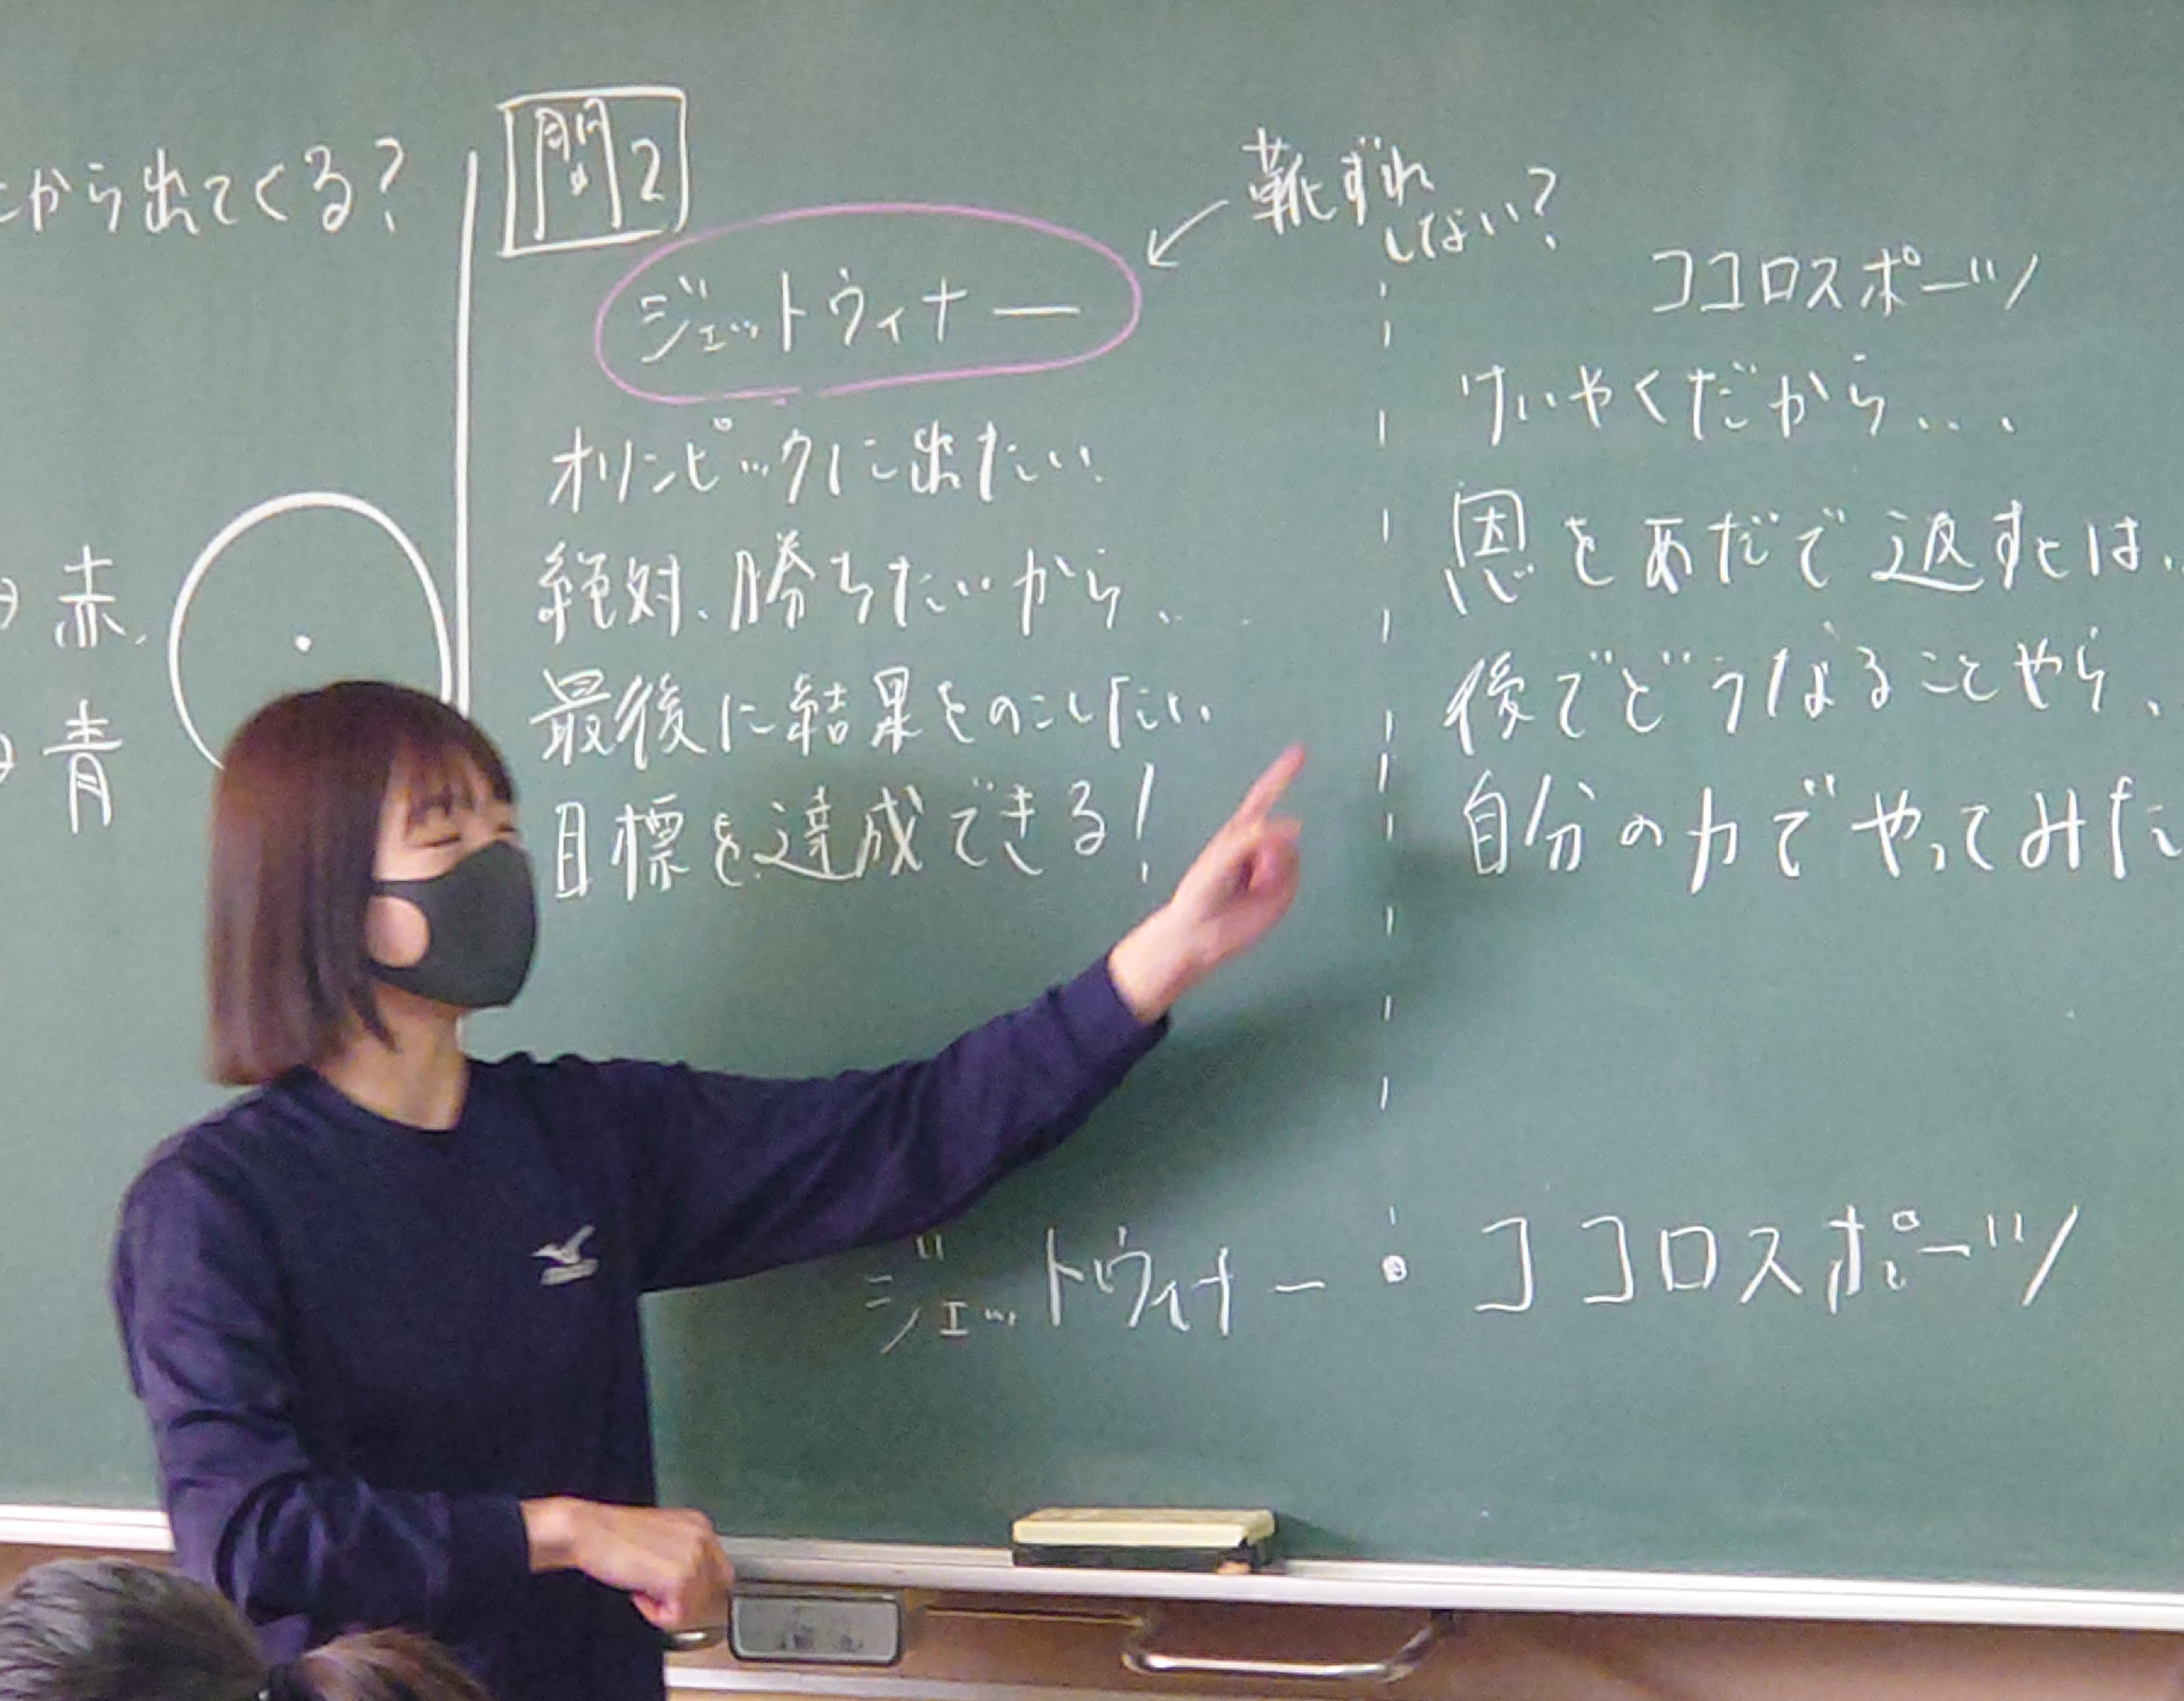 から出てくる?
赤
青
問2
ジェットウィナー
靴ずれ
しない?
オリンピックに出たい
絶対、勝ちたいから、
最後に結果をのこしたい
目標を達成できる!
ココロスポーツ
けいやくだから...
恩をあだで返すとは..
後でどうなることやら、
自分の力でやってみた
ジェットウィナー
ココロスポーツ